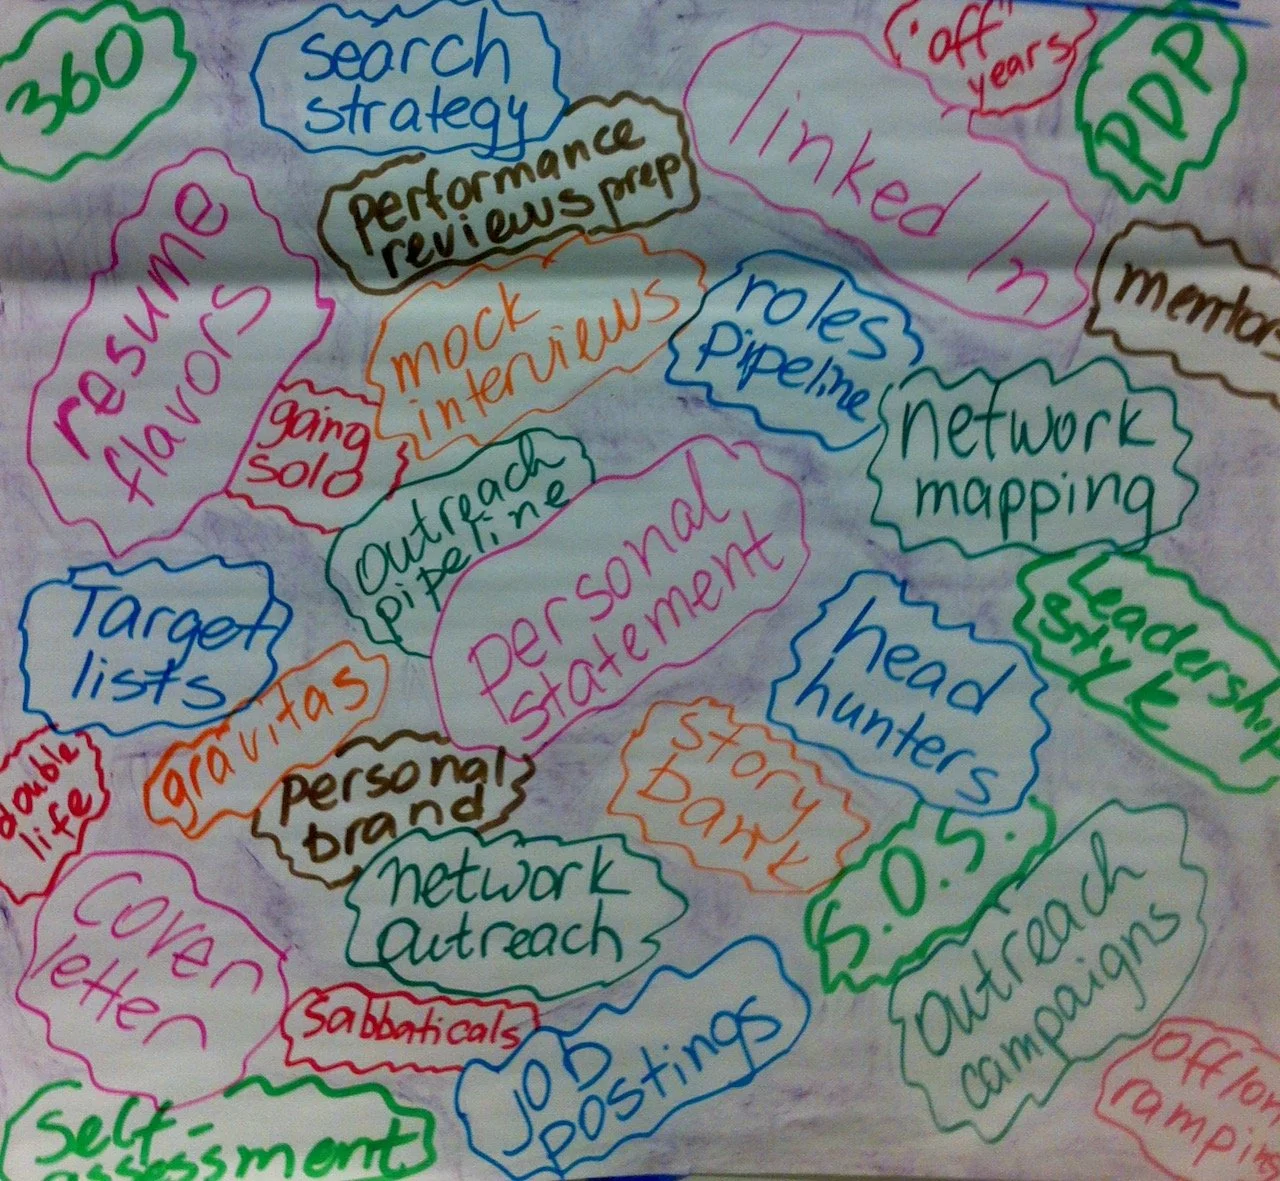 360
search
strategy
linked In
"off"
years
PDP
performance
reviews prep
resume
flavors
mock
interviews
roles
pipeline
mentors
going
solo
network
mapping
outreach
pipeline
personal
statement
Target
lists
head
hunters
Leadership
style
gravitas
double
life
personal
brand
story
bank
S.O.S.
cover
letter
network
outreach
outreach
campaigns
sabbaticals
job
postings
off/on
ramping
self-
assessment